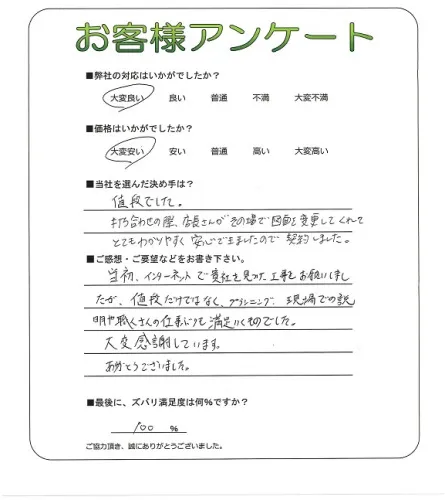 お客様アンケート
■弊社の対応はいかがでしたか？
大変良い 良い 普通 不満 大変不満
■価格はいかがでしたか？
大変安い 安い 普通 高い 大変高い
■当社を選んだ決め手は？
値段でした。
打ち合わせの際、店長さんがその場で図面を変更してくれて
とてもわかりやすく安心できましたので契約しました。
■ご感想・ご要望などをお書き下さい。
当初、インターネットで貴社を見つけ工事をお願いしまし
たが、値段だけではなく、プランニング、現場での説
明や職人さんの仕事ぶりも満足いくものでした。
大変感謝しています。
ありがとうございました。
■最後に、ズバリ満足度は何%ですか？
100 %
ご協力頂き、誠にありがとうございました。